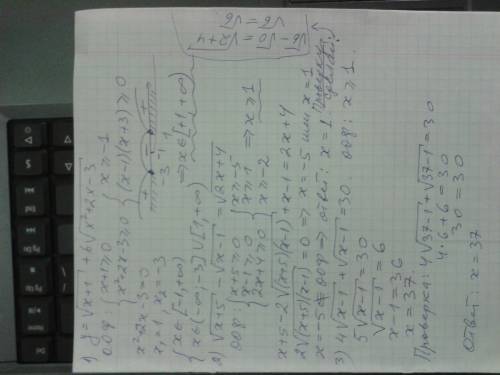 1) y = √x+1 + 6√x²+2x-3
ООф: { x+1≥0 { x≥-1
x²+2x-3≥0 { (x-1)(x+3)≥0
x²+2x-3=0
x₁=1, x₂=-3
-3 -1 1
{ x∈[-1,+∞)
x∈(-∞,-3]∪[1,+∞) ⇒ x∈[+1,+∞)
2) √x+5 - √x-1 = √2x+4
ООф: { x+5≥0 { x≥-5
x-1≥0 { x≥1 ⇒ x≥1
2x+4≥0 { x≥-2
x+5-2√(x+5)(x-1)+x-1=2x+4
2√(x+5)(x-1)=0 ⇒ x=-5 или x=1
x=-5∉ ООф ⇒ ответ: x=1
√6-√0=√2+4
√6=√6
3) 4√x-1+√x-1=30. ООф: x≥1.
5√x-1=30
√x-1=6
x-1=36
x=37
Проверка: 4√37-1+√37-1=30
4·6+6=30
30=30
Ответ: x=37